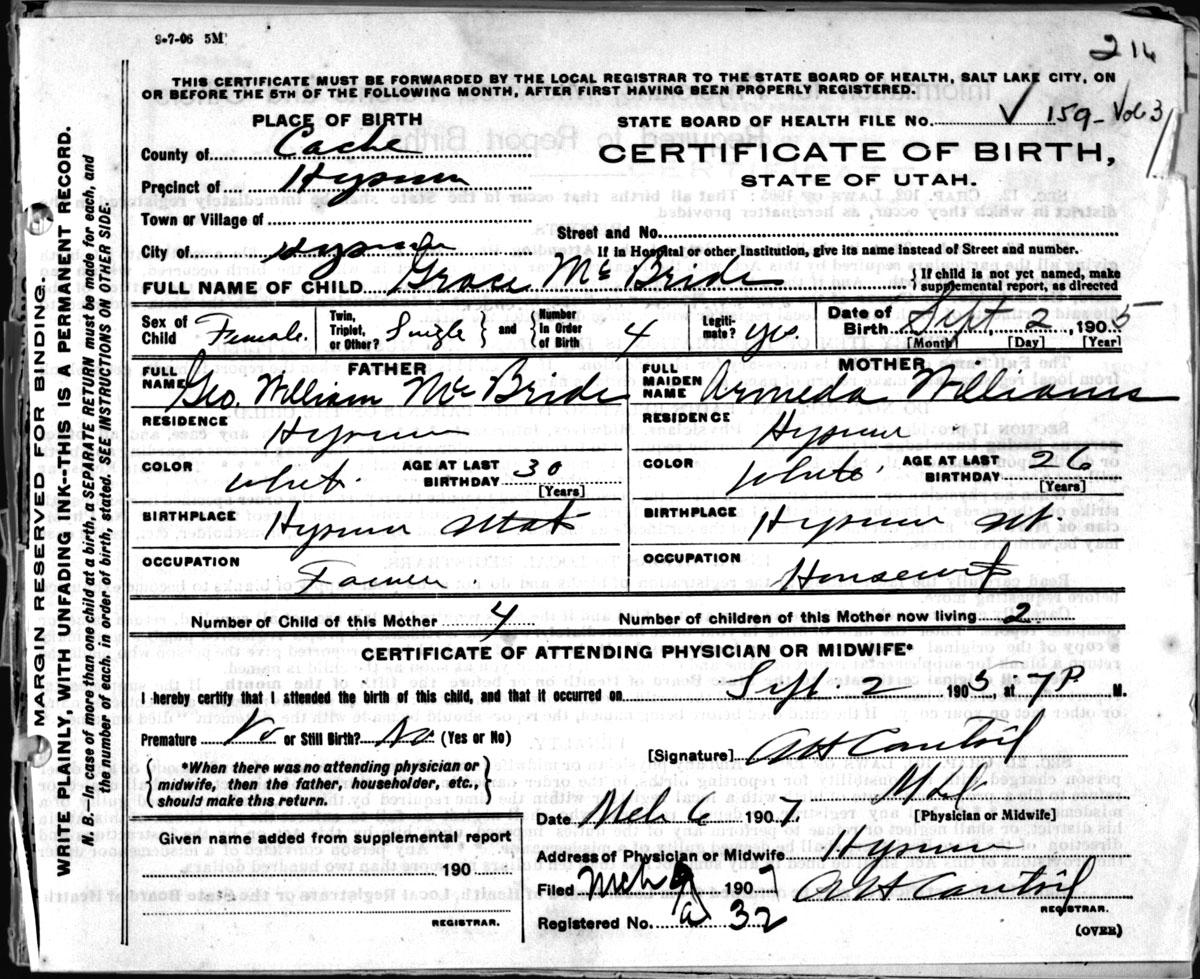 9-7-06 5M
214
THIS CERTIFICATE MUST BE FORWARDED BY THE LOCAL REGISTRAR TO THE STATE BOARD OF HEALTH, SALT LAKE CITY, ON
OR BEFORE THE 5TH OF THE FOLLOWING MONTH, AFTER FIRST HAVING BEEN PROPERLY REGISTERED.
PLACE OF BIRTH
STATE BOARD OF HEALTH FILE No. √ 159- Vol 3
County of Cache
CERTIFICATE OF BIRTH,
STATE OF UTAH.
Precinct of Hyrum
Town or Village of
Street and No.
City of Hyrum
If in Hospital or other Institution, give its name instead of Street and number.
FULL NAME OF CHILD Grace McBride
} If child is not yet named, make
supplemental report, as directed
Sex of Child Female.
Twin, Triplet, or Other? Single } and { Number in Order of Birth 4
Legiti-mate? yes
Date of Birth Sept 2, 1905
[Month] [Day] [Year]
FATHER
FULL NAME Geo. William McBride
MOTHER
FULL MAIDEN NAME Armeda Williams
RESIDENCE Hyrum
RESIDENCE Hyrum
COLOR Whit.
AGE AT LAST BIRTHDAY 30
[Years]
COLOR White
AGE AT LAST BIRTHDAY 26
[Years]
BIRTHPLACE Hyrum Utah
BIRTHPLACE Hyrum Ut.
OCCUPATION Farmer.
OCCUPATION Housewife
Number of Child of this Mother 4
Number of children of this Mother now living 2.
CERTIFICATE OF ATTENDING PHYSICIAN OR MIDWIFE*
I hereby certify that I attended the birth of this child, and that it occurred on Sept. 2 1905, at 7P M.
Premature No or Still Birth? No (Yes or No)
*When there was no attending physician or
midwife, then the father, householder, etc.,
should make this return.
[Signature]
M.D.
[Physician or Midwife]
Date Mch 6 1907.
Address of Physician or Midwife Hyrum
Given name added from supplemental report
190
REGISTRAR.
Filed Mch 9 1907
REGISTRAR.
Registered No. a 32
(OVER)
MARGIN RESERVED FOR BINDING.
WRITE PLAINLY, WITH UNFADING INK--THIS IS A PERMANENT RECORD.
N. B.--In case of more than one child at a birth, a SEPARATE RETURN must be made for each, and
the number of each, in order of birth, stated. SEE INSTRUCTIONS ON OTHER SIDE.